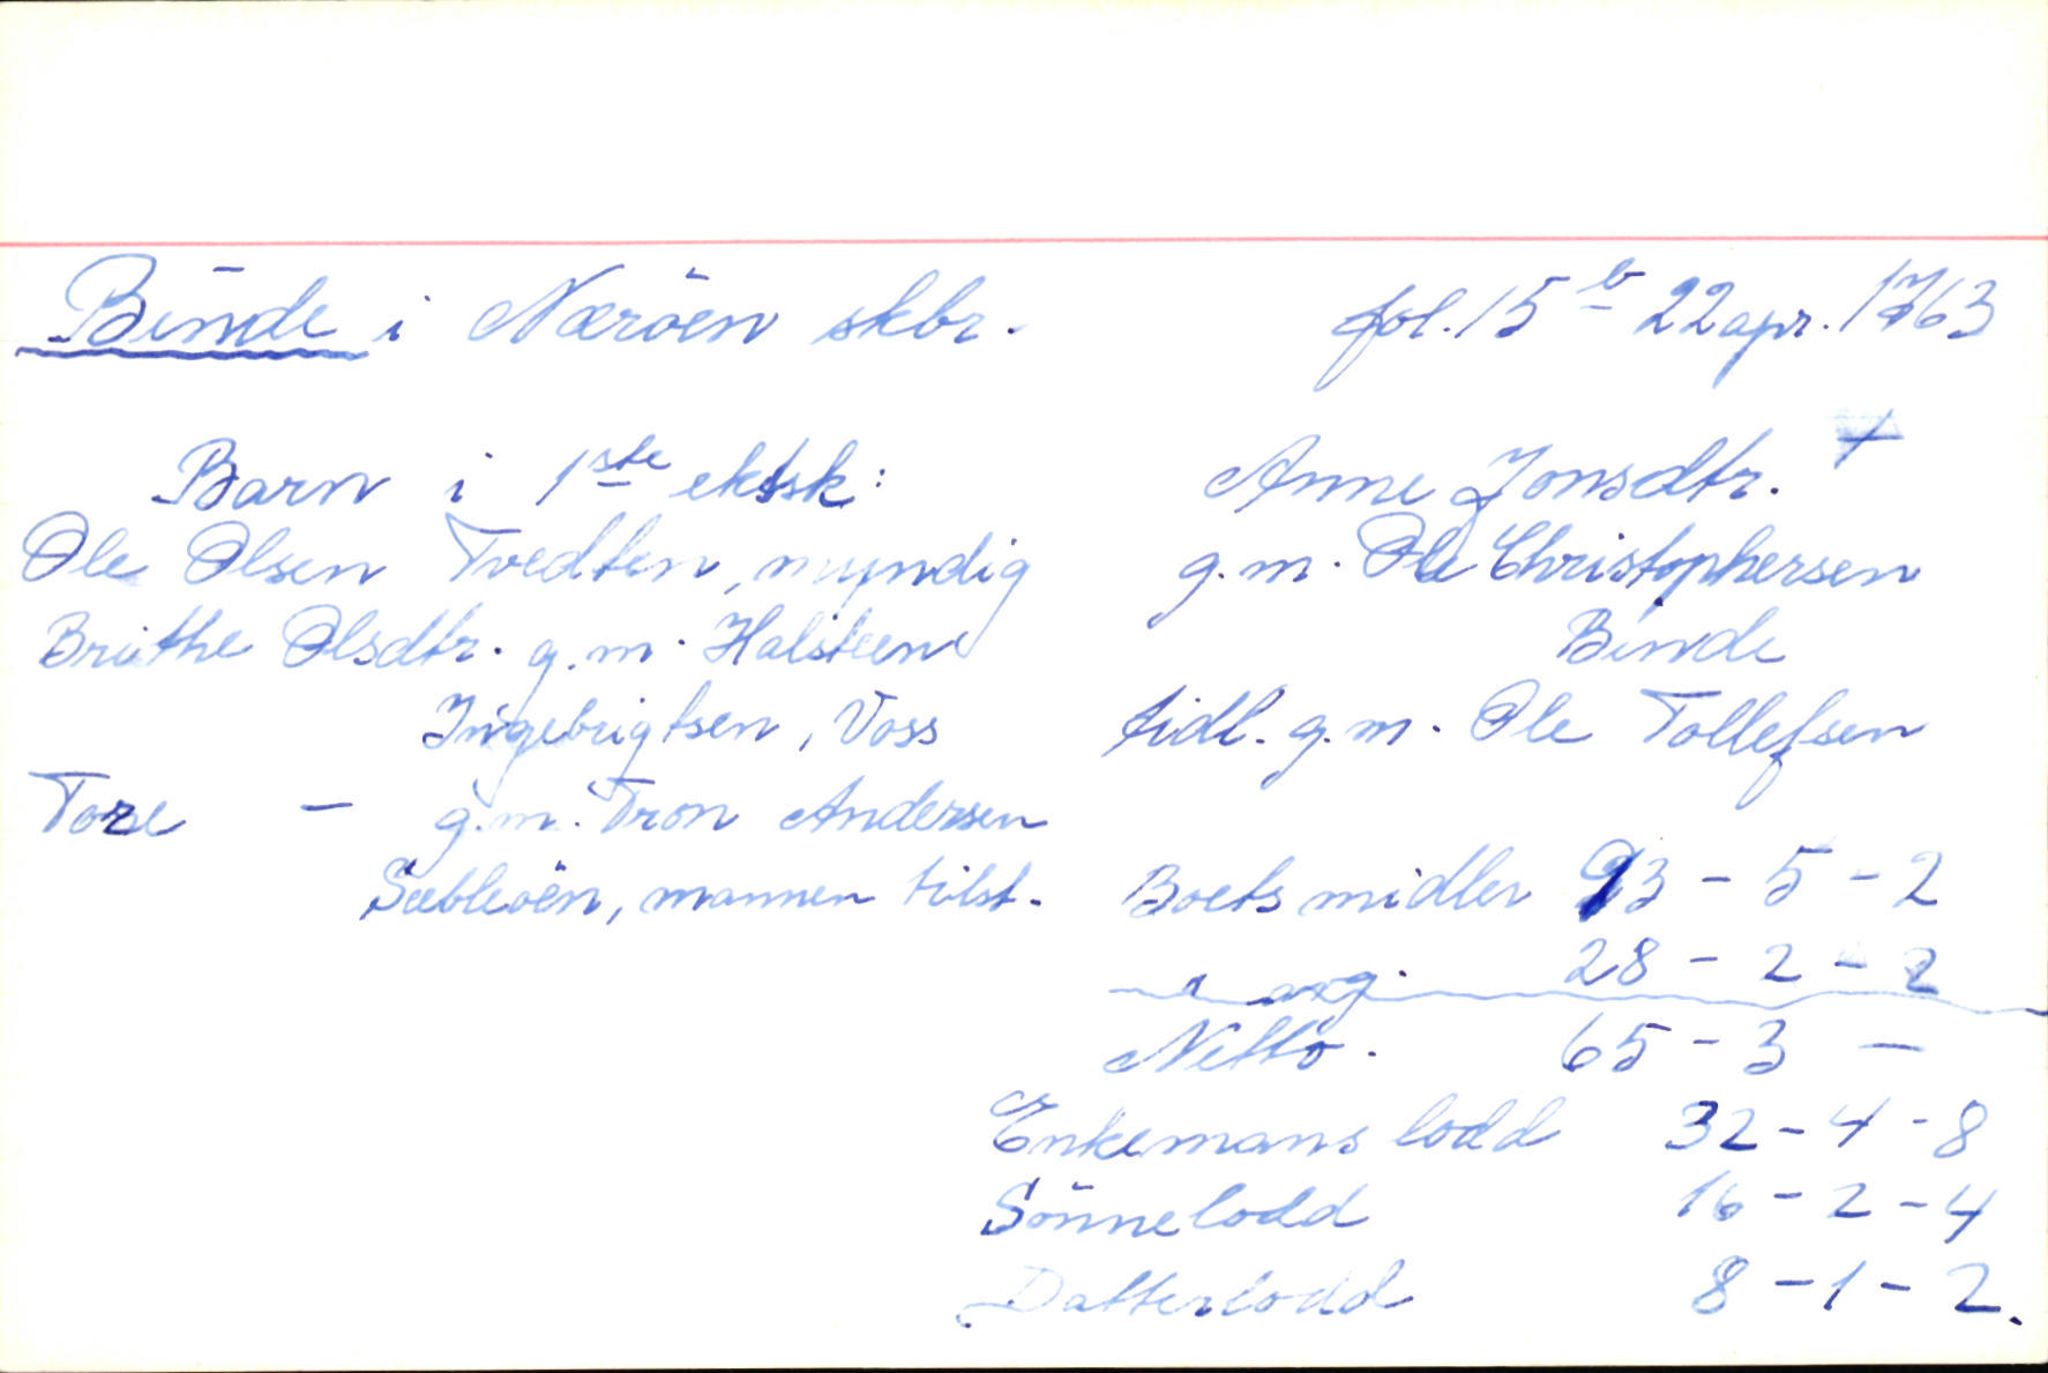 Binde i Næröen skbr. fol. 15 b 22 apr. 1763
Barn i 1ste ektsk:
Ole Olsen Tvedten, myndig
Brithe Olsdtr. g.m. Halsteen
Ingebrigtsen, Voss
Tore — g.m. Tron Andersen
Sæbleöen, mannen tilst.
Anne Jonsdtr. +
g.m. Ole Christophersen
Binde
tidl. g.m. Ole Tollefsen
Boets midler 93 - 5 - 2
28 - 2 - 2
Netto. 65 - 3 —
Enkemans lodd 32 - 4 - 8
Sönnelodd 16 - 2 - 4
Datterlodd 8 - 1 - 2.